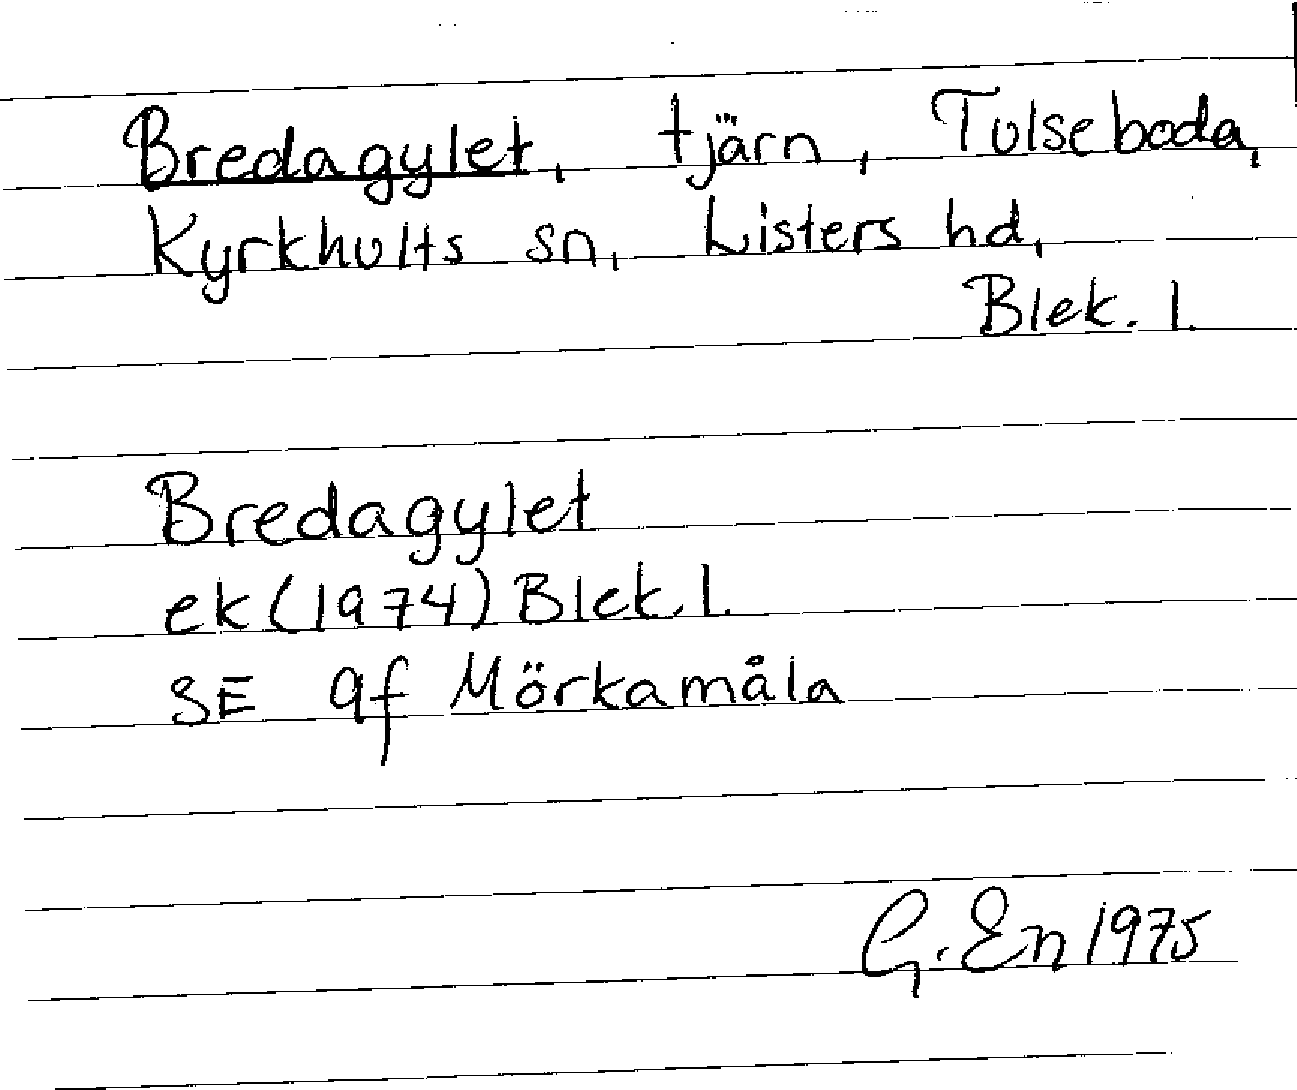 Bredagylet, tjärn, Tulseboda,
Kyrkhults sn, Listers hd,
Blek. l.
Bredagylet
ek (1974) Blek. l.
SE af Mörkamåla
G. En 1975